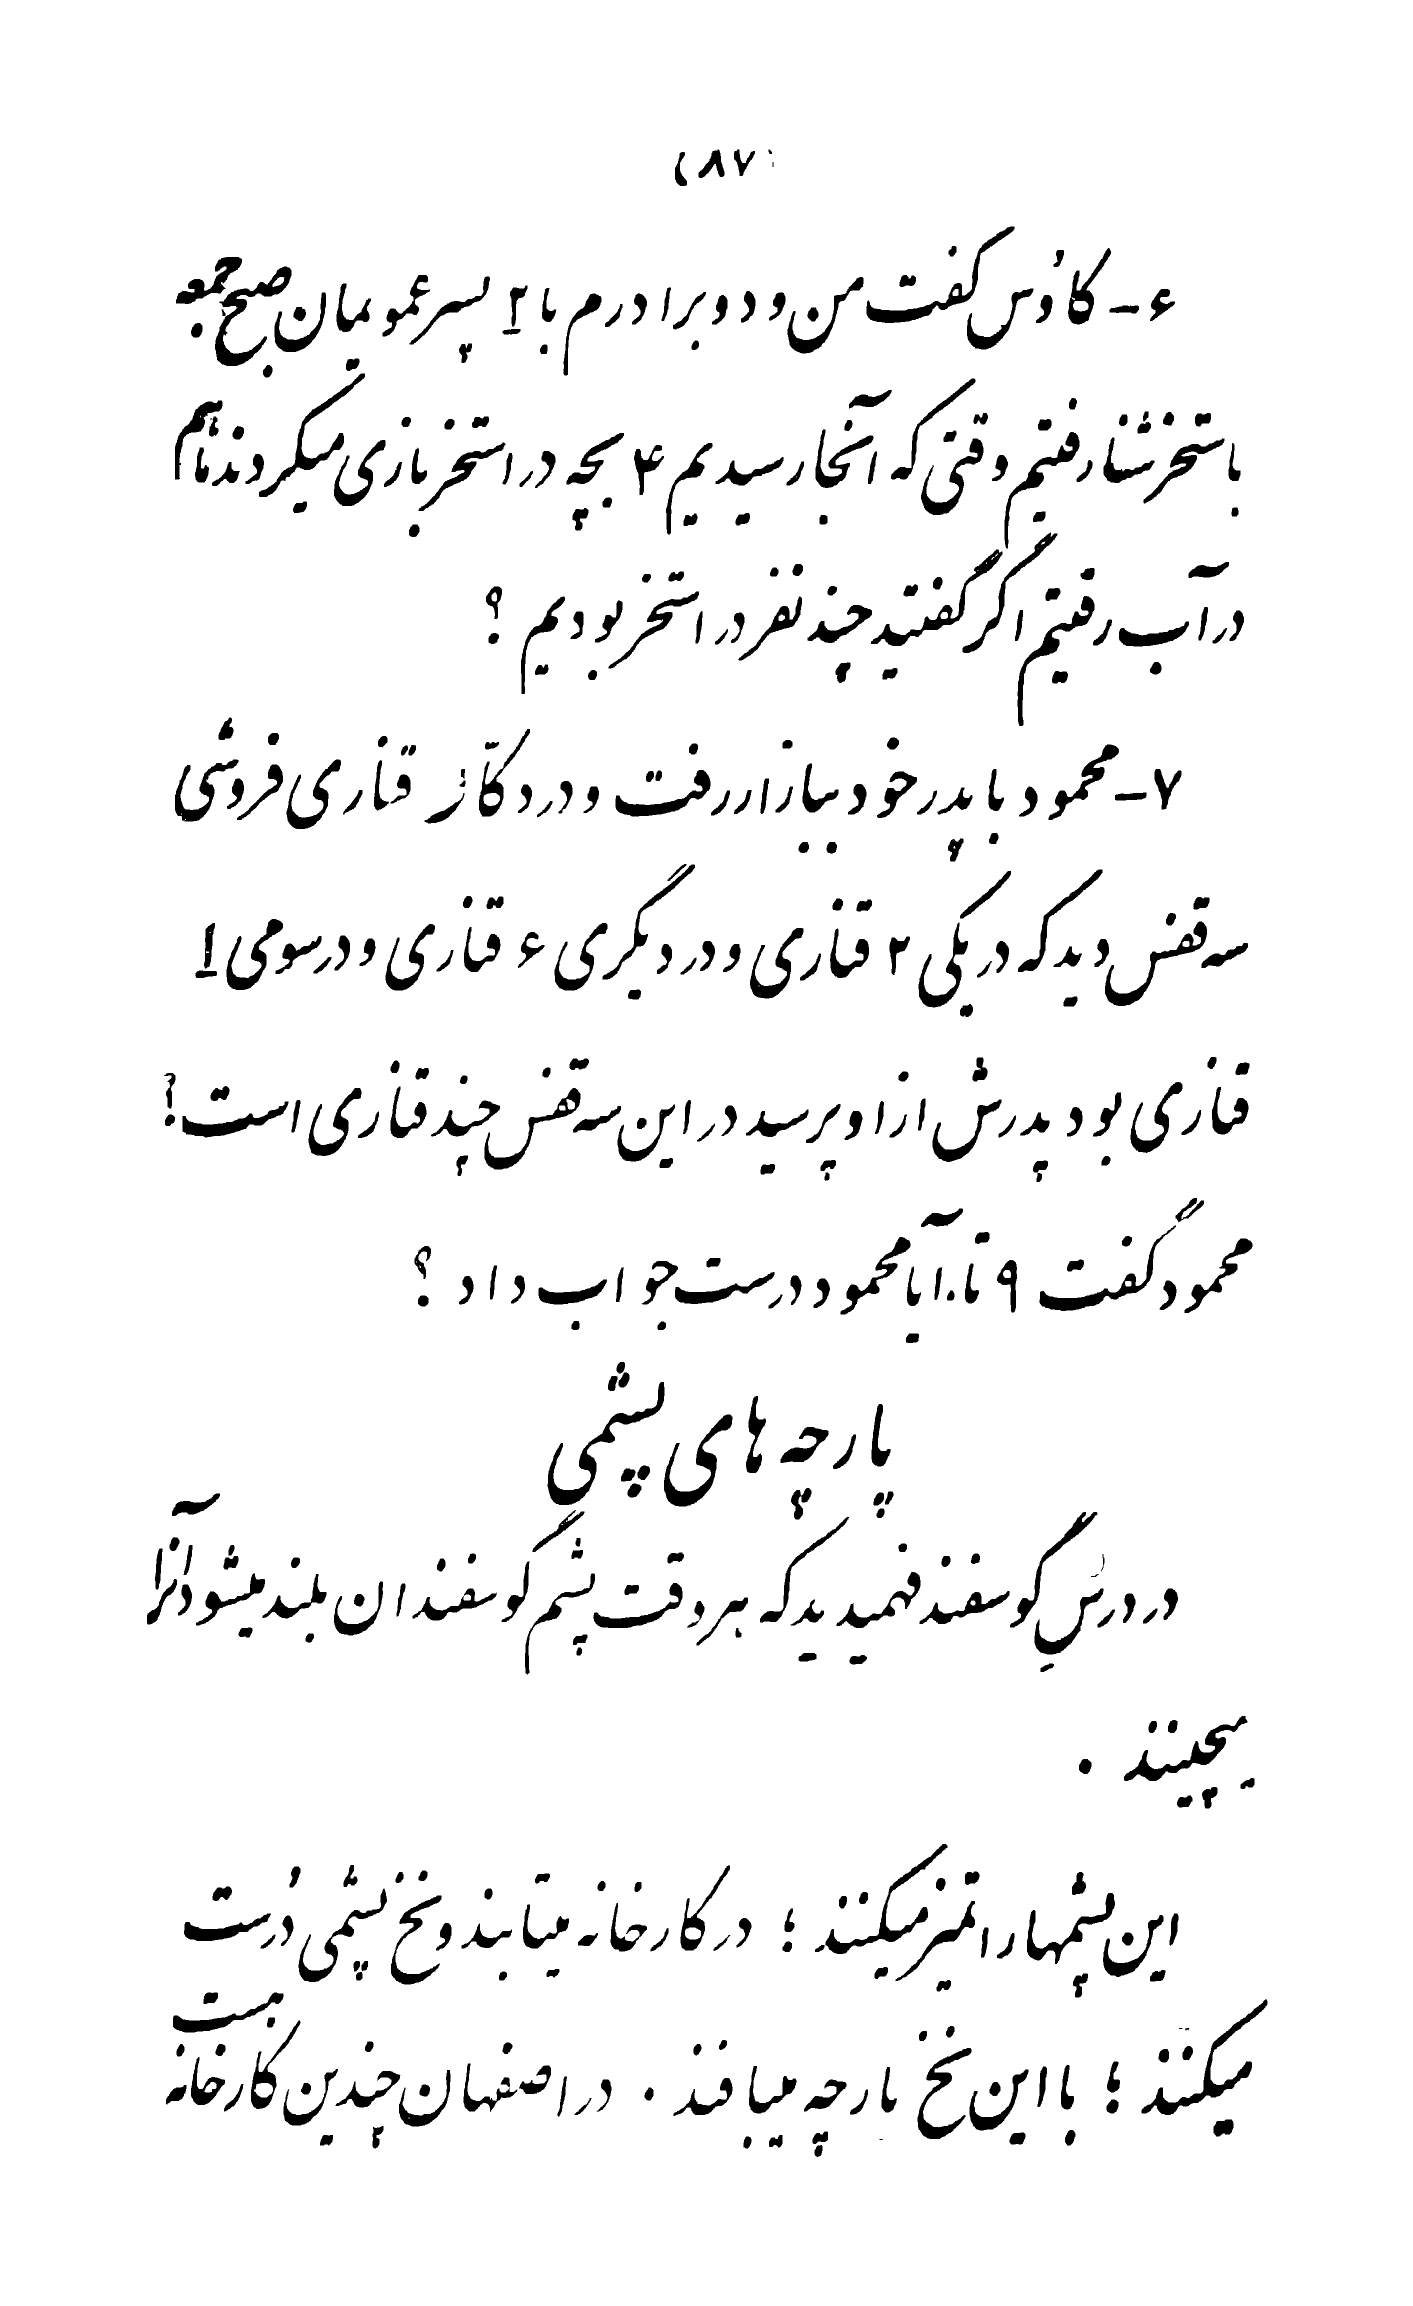 (۸۷)
۶- کاوُس گفت من و دو برادرم با ۲ پسر عمویمان صبح جمعه
باستخر شنا رفتیم وقتی که آنجا رسیدیم ۴ بچه در استخر بازی میکردند ما هم
در آب رفتیم اگر گفتید چند نفر در استخر بودیم ؟
۷- محمود با پدر خود ببازار رفت و در دکّان قناری فروشی
سه قفس دید که در یکی ۲ قناری و در دیگری ۶ قناری و در سومی ۱
قناری بود پدرش از او پرسید در این سه قفس چند قناری است؟
محمود گفت ۹ تا. آیا محمود درست جواب داد ؟
پارچه های پشمی
در درسِ گوسفند فهمیدید که هر وقت پشم گوسفندان بلند میشود آنرا
میچینند .
این پشمها را تمیز میکنند ؛ در کارخانه میتابند و نخ پشمی دُرست
میکنند ؛ با این نخ پارچه میبافند . در اصفهان چندین کارخانه
هست